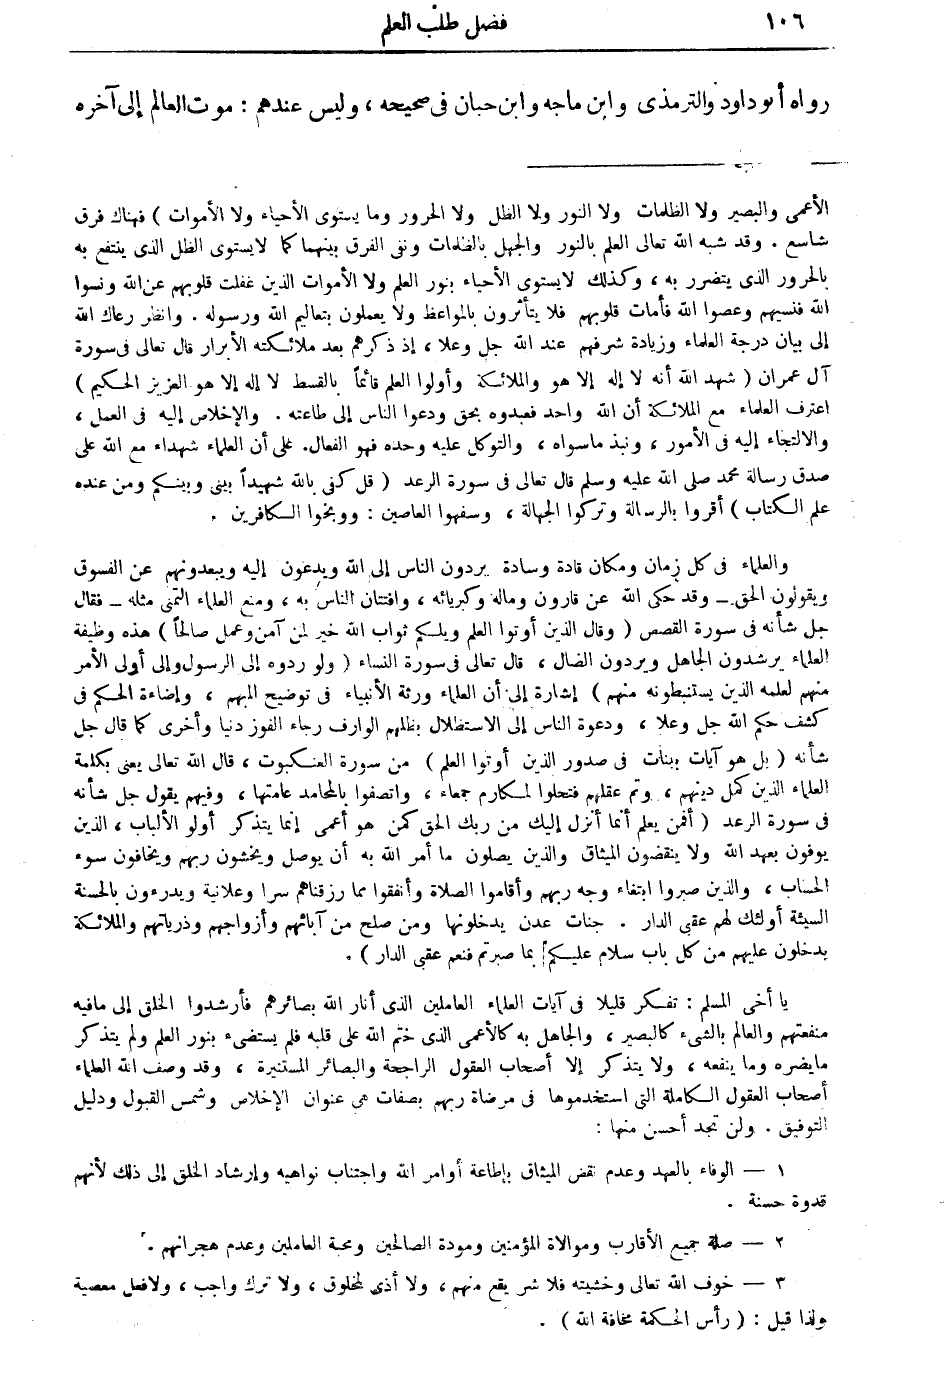 ١٠٦
فضل طلب العلم
رواه أبو داود والترمذى وابن ماجه وابن حبان فى صحيحه ، وليس عندهم : موت العالم إلى آخره
الأعمى والبصير ولا الظلمات ولا النور ولا الظل ولا الحرور وما يستوى الأحياء ولا الأموات ) فهناك فرق
شاسع . وقد شبه الله تعالى العلم بالنور والجهل بالظلمات ونفى الفرق بينهما كما لايستوى الظل الذى ينتفع به
بالحرور الذى يتضرر به ، وكذلك لايستوى الأحياء بنور العلم ولا الأموات الذين غفلت قلوبهم عن الله ونسوا
الله فنسيهم وعصوا الله فأمات قلوبهم فلا يتأثرون بالمواعظ ولا يعملون بتعاليم الله ورسوله . وانظر رعاك الله
إلى بيان درجة العلماء وزيادة شرفهم عند الله جل وعلا ، إذ ذكرهم بعد ملائكته الأبرار قال تعالى فى سورة
آل عمران ( شهد الله أنه لا إله إلا هو والملائكة وأولوا العلم قائماً بالقسط لا إله إلا هو العزيز الحكيم )
اعترف العلماء مع الملائكة أن الله واحد فعبدوه بحق ودعوا الناس إلى طاعته . والإخلاص إليه فى العمل ،
والالتجاء إليه فى الأمور ، ونبذ ماسواه ، والتوكل عليه وحده فهو الفعال. على أن العلماء شهداء مع الله على
صدق رسالة محمد صلى الله عليه وسلم قال تعالى فى سورة الرعد ( قل كفى بالله شهيداً بينى وبينكم ومن عنده
علم الكتاب ) أقروا بالرسالة وتركوا الجهالة ، وسفهوا العاصين : ووبخوا الكافرين .
والعلماء فى كل زمان ومكان قادة وسادة يردون الناس إلى الله ويدعون إليه ويبعدونهم عن الفسوق
ويقولون الحق ــ وقد حكى الله عن قارون وماله وكبريائه ، وافتتان الناس به ، ومنع العلماء التمنى مثله ــ فقال
جل شأنه فى سورة القصص ( وقال الذين أوتوا العلم ويلكم ثواب الله خير لمن آمن وعمل صالحاً ) هذه وظيفة
العلماء يرشدون الجاهل ويردون الضال ، قال تعالى فى سورة النساء ( ولو ردوه إلى الرسول وإلى أولى الأمر
منهم لعلمه الذين يستنبطونه منهم ) إشارة إلى أن العلماء ورثة الأنبياء فى توضيح المبهم ، وإضاءة الحكم فى
كشف حكم الله جل وعلا ، ودعوة الناس إلى الاستظلال بظلهم الوارف رجاء الفوز دنيا وأخرى كما قال جل
شأنه ( بل هو آيات بينات فى صدور الذين أوتوا العلم ) من سورة العنكبوت ، قال الله تعالى يعنى بكلمة
العلماء الذين كمل دينهم ، وتم عقلهم فتحلوا لمكارم جمعاء ، واتصفوا بالمحامد عامتها ، وفيهم يقول جل شأنه
فى سورة الرعد ( أفمن يعلم أنما أنزل إليك من ربك الحق كمن هو أعمى إنما يتذكر أولو الألباب ، الذين
يوفون بعهد الله ولا ينقضون الميثاق والذين يصلون ما أمر الله به أن يوصل ويخشون ربهم ويخافون سوء
الحساب ، والذين صبروا ابتغاء وجه ربهم وأقاموا الصلاة وأنفقوا مما رزقناهم سرا وعلانية ويدرءون بالحسنة
السيئة أولئك لهم عقبى الدار . جنات عدن يدخلونها ومن صلح من آبائهم وأزواجهم وذرياتهم والملائكة
يدخلون عليهم من كل باب سلام عليكم بما صبرتم فنعم عقبى الدار ) .
يا أخى المسلم : تفكر قليلا فى آيات العلماء العاملين الذى أنار الله بصائرهم فأرشدوا الخلق إلى مافيه
منفعتهم والعالم بالشىء كالبصير ، والجاهل به كالأعمى الذى ختم الله على قلبه فلم يستضىء بنور العلم ولم يتذكر
مايضره وما ينفعه ، ولا يتذكر إلا أصحاب العقول الراجحة والبصائر المستنيرة ، وقد وصف الله العلماء
أصحاب العقول الكاملة التى استخدموها فى مرضاة ربهم بصفات هى عنوان الإخلاص وشمس القبول ودليل
التوفيق . ولن تجد أحسن منها :
١ — الوفاء بالعهد وعدم نقض الميثاق بإطاعة أوامر الله واجتناب نواهيه وإرشاد الخلق إلى ذلك لأنهم
قدوة حسنة .
٢ — صلة جميع الأقارب وموالاة المؤمنين ومودة الصالحين ومحبة العاملين وعدم هجرانهم .
٣ — خوف الله تعالى وخشيته فلا شر يقع منهم ، ولا أذى لمخلوق ، ولا ترك واجب ، ولافعل معصية
ولذا قيل : ( رأس الحكمة مخافة الله ) .